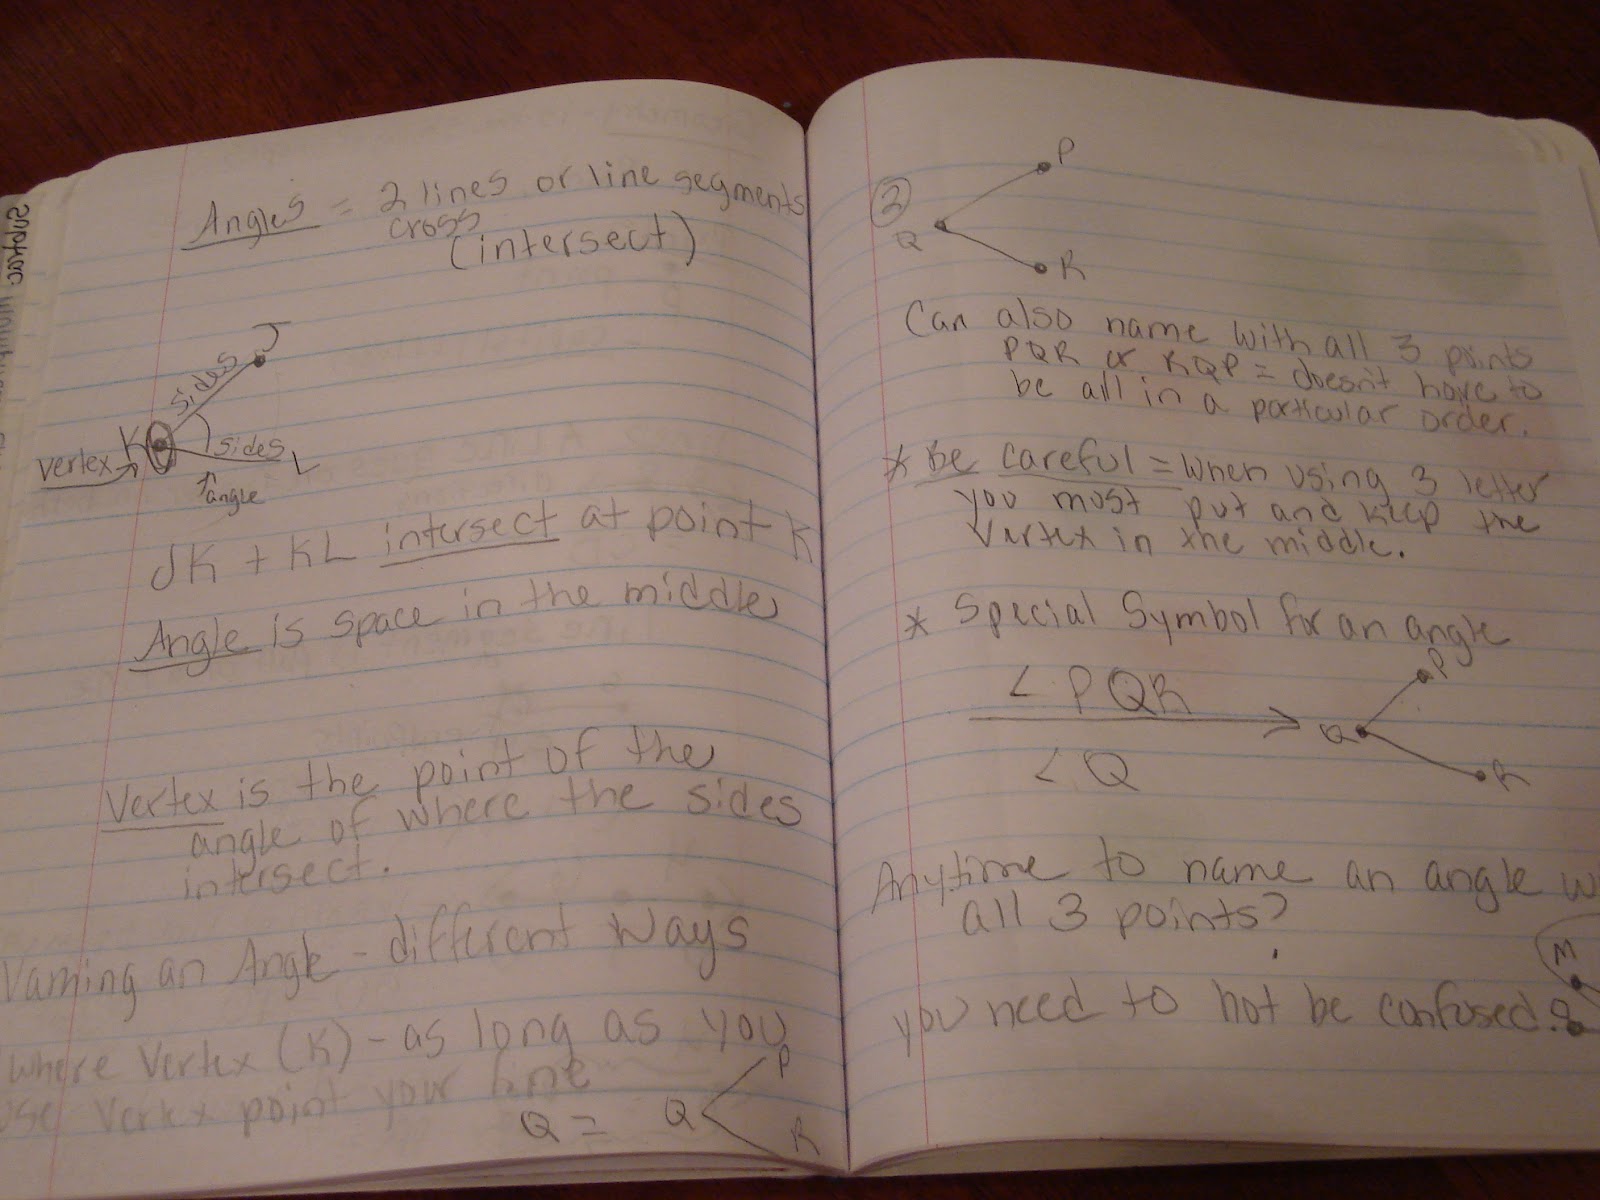 Angles = 2 lines or line segments
cross
(intersect)
J
sides
K
sides
L
Vertex
angle
JK + KL intersect at point K
Angle is space in the middle
Vertex is the point of the
angle of where the sides
intersect.
Naming an Angle - different ways
where Vertex (K) - as long as you
use vertex point your fine
P
Q = Q
R
2
P
Q
R
Can also name with all 3 points
PQR or RQP = doesn't have to
be all in a particular order.
* Be careful = when using 3 letter
you must put and keep the
vertex in the middle.
* Special Symbol for an angle
< PQR
< Q
P
Q
R
Anytime to name an angle w
all 3 points?
M
you need to not be confused.